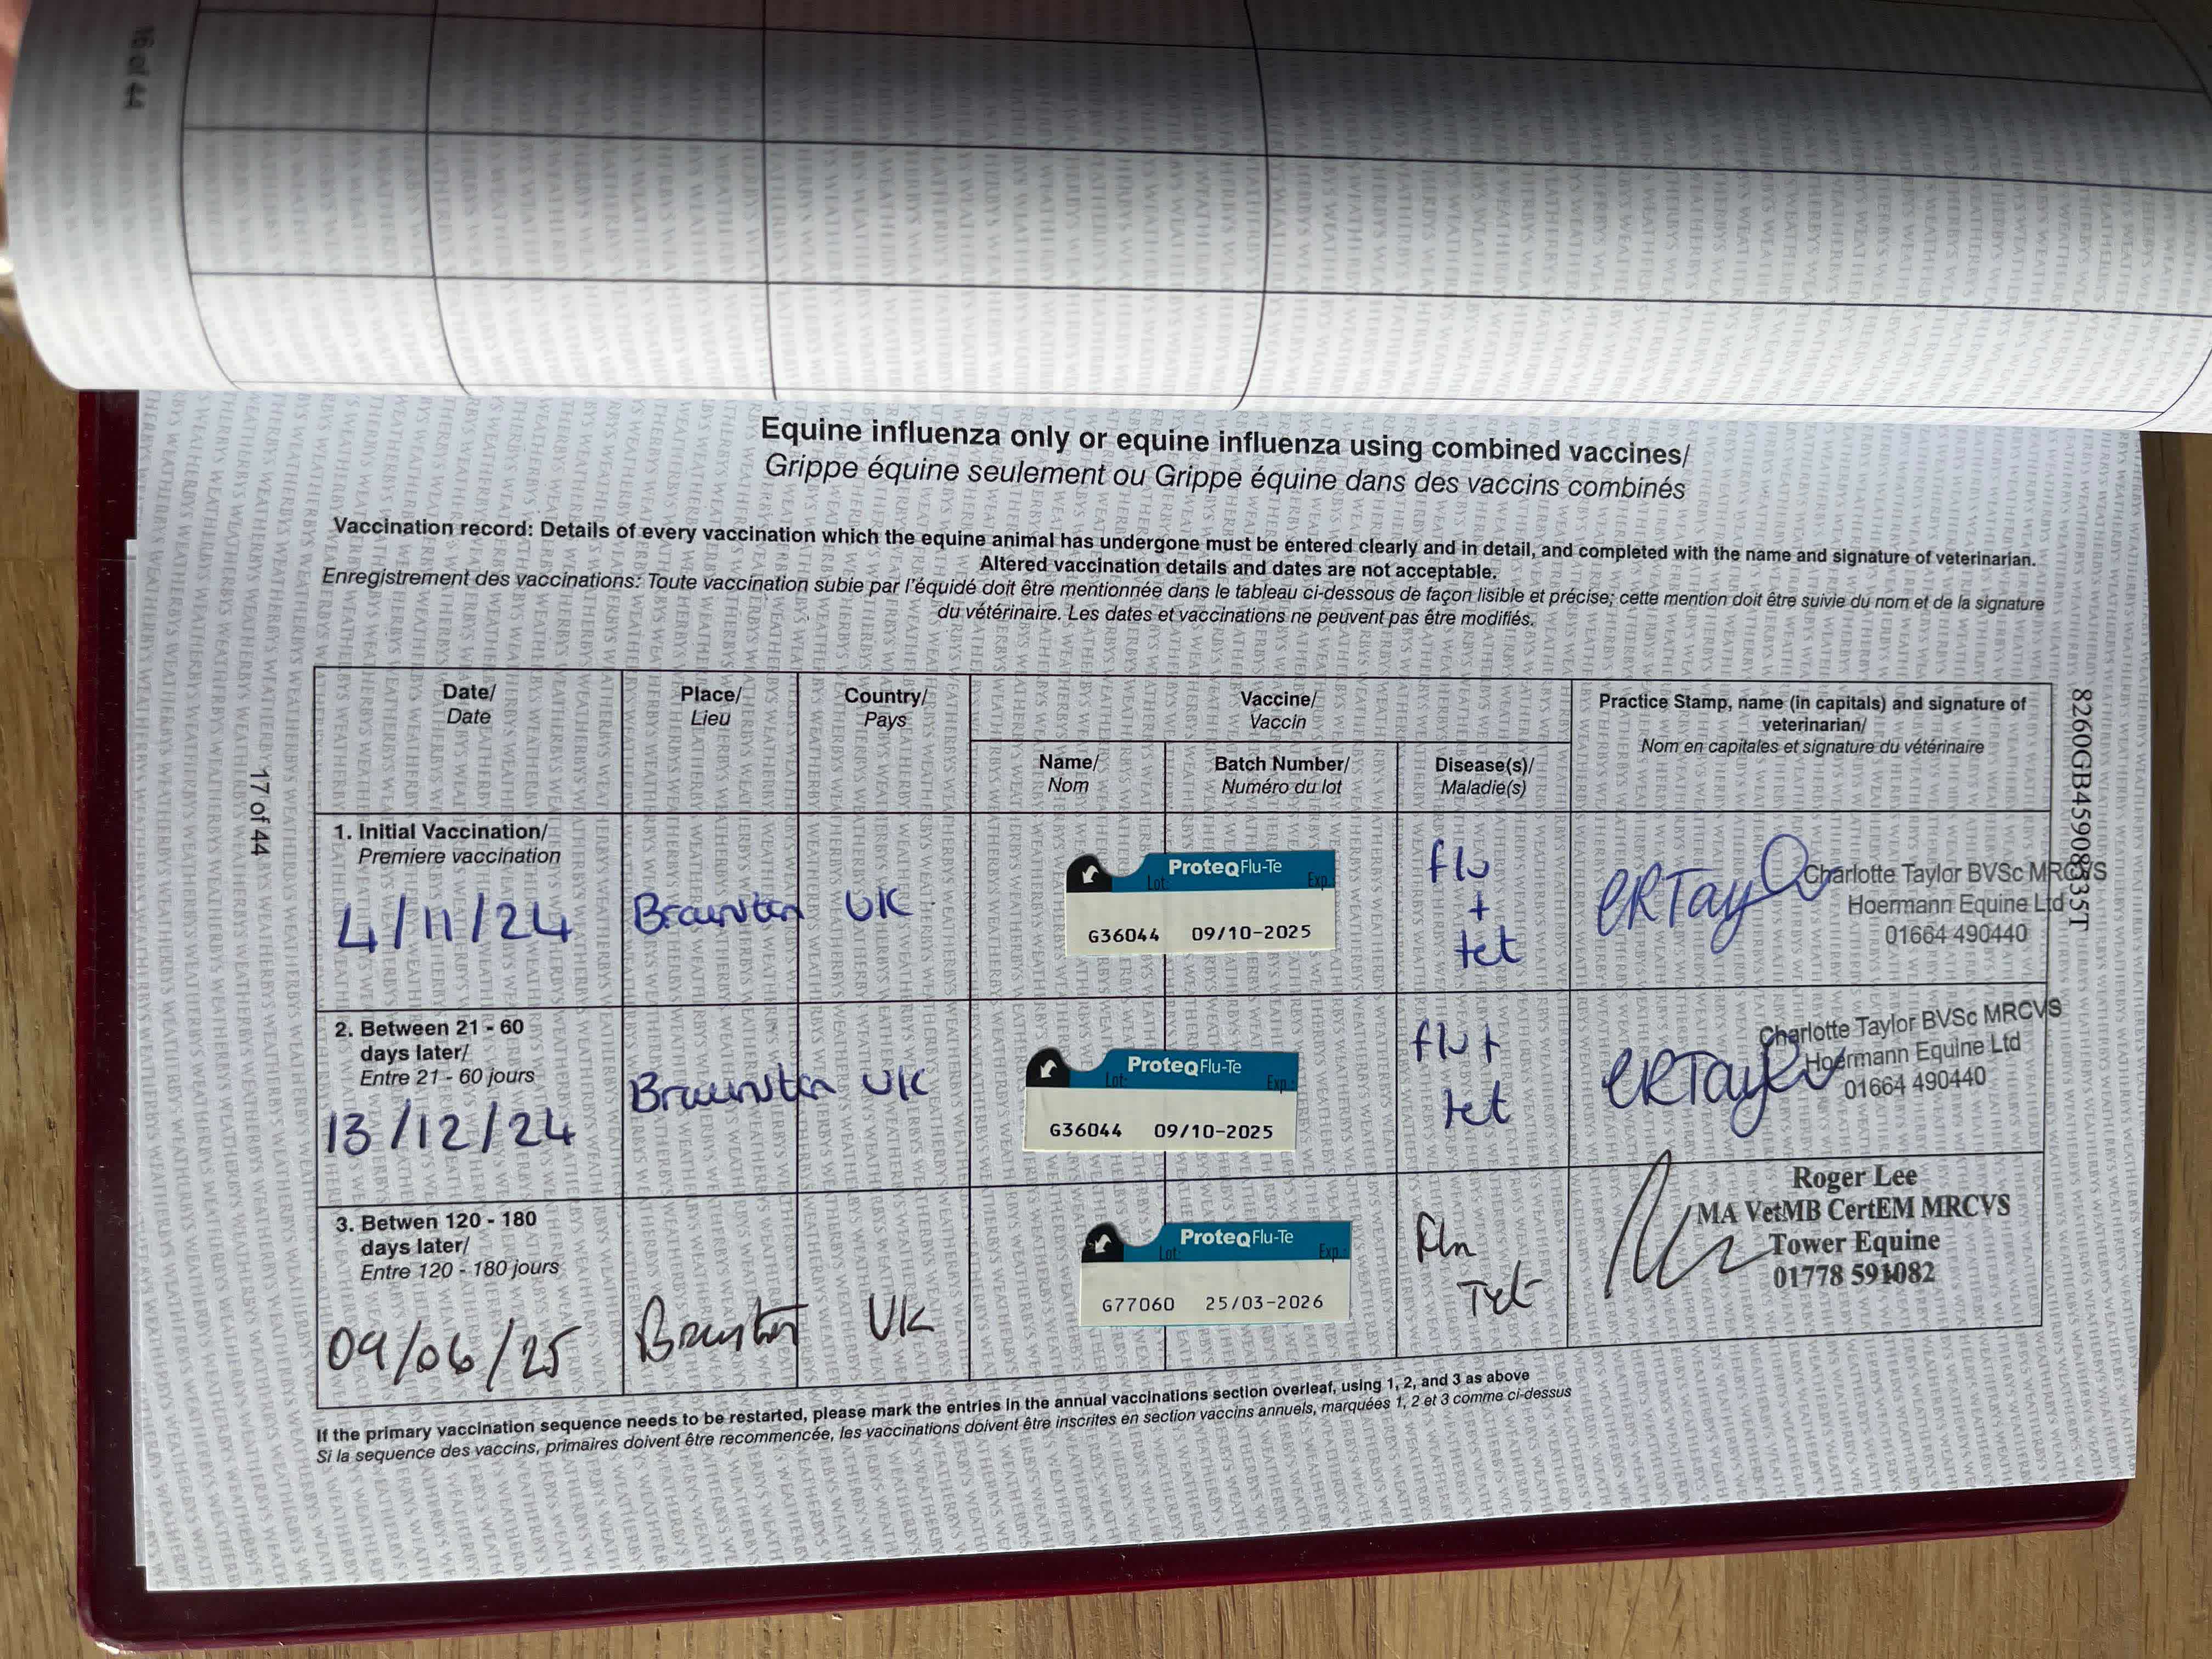 16 of 44
Equine influenza only or equine influenza using combined vaccines/
Grippe équine seulement ou Grippe équine dans des vaccins combinés
Vaccination record: Details of every vaccination which the equine animal has undergone must be entered clearly and in detail, and completed with the name and signature of veterinarian.
Altered vaccination details and dates are not acceptable.
Enregistrement des vaccinations: Toute vaccination subie par l'équidé doit être mentionnée dans le tableau ci-dessous de façon lisible et précise; cette mention doit être suivie du nom et de la signature
du vétérinaire. Les dates et vaccinations ne peuvent pas être modifiés.
Date/
Date
Place/
Lieu
Country/
Pays
Vaccine/
Vaccin
Name/
Nom
Batch Number/
Numéro du lot
Disease(s)/
Maladie(s)
Practice Stamp, name (in capitals) and signature of
veterinarian/
Nom en capitales et signature du vétérinaire
1. Initial Vaccination/
Premiere vaccination
4/11/24
Braunston
UK
ProteqFlu-Te
Lot: Exp.:
G36044 09/10-2025
flu
+
tet
CRTaylor
Charlotte Taylor BVSc MRCVS
Hoermann Equine Ltd
01664 490440
2. Between 21 - 60
days later/
Entre 21 - 60 jours
13/12/24
Braunston
UK
ProteqFlu-Te
Lot: Exp.:
G36044 09/10-2025
flu +
tet
CRTaylor
Charlotte Taylor BVSc MRCVS
Hoermann Equine Ltd
01664 490440
3. Betwen 120 - 180
days later/
Entre 120 - 180 jours
09/06/25
Braunston
UK
ProteqFlu-Te
Lot: Exp.:
G77060 25/03-2026
Flu
Tet
Roger Lee
MA VetMB CertEM MRCVS
Tower Equine
01778 591082
If the primary vaccination sequence needs to be restarted, please mark the entries in the annual vaccinations section overleaf, using 1, 2, and 3 as above
Si la sequence des vaccins, primaires doivent être recommencée, les vaccinations doivent être inscrites en section vaccins annuels, marquées 1, 2 et 3 comme ci-dessus
17 of 44
8260GB45908335T
WEATHERBYS